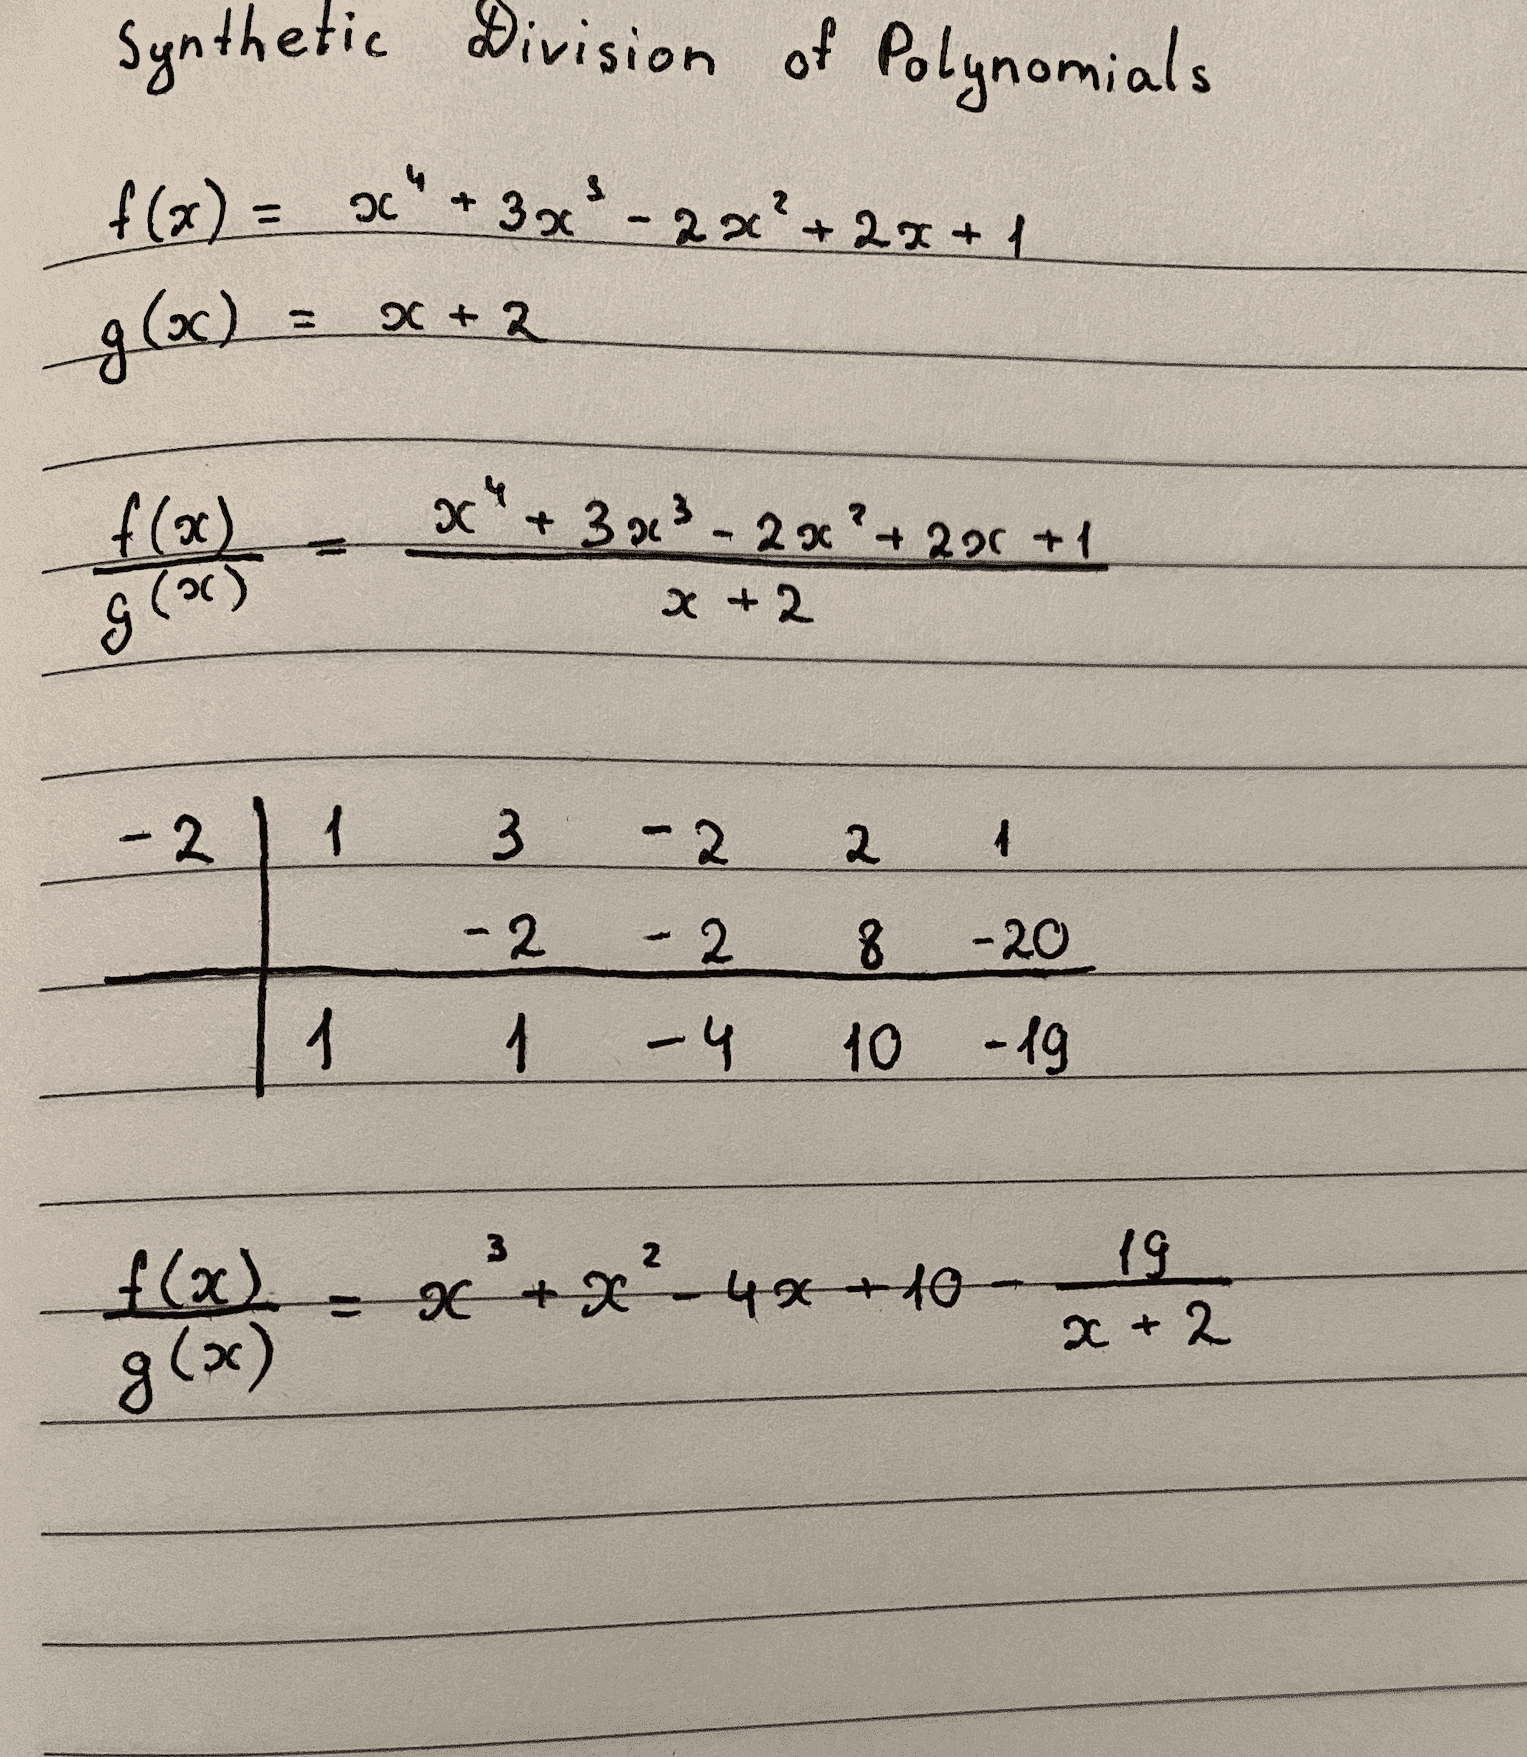 Synthetic Division of Polynomials
f(x) = x⁴ + 3x³ - 2x² + 2x + 1
g(x) = x + 2
f(x)/g(x) = (x⁴ + 3x³ - 2x² + 2x + 1)/(x + 2)
-2 | 1 3 -2 2 1
-2 -2 8 -20
1 1 -4 10 -19
f(x)/g(x) = x³ + x² - 4x + 10 - 19/(x + 2)